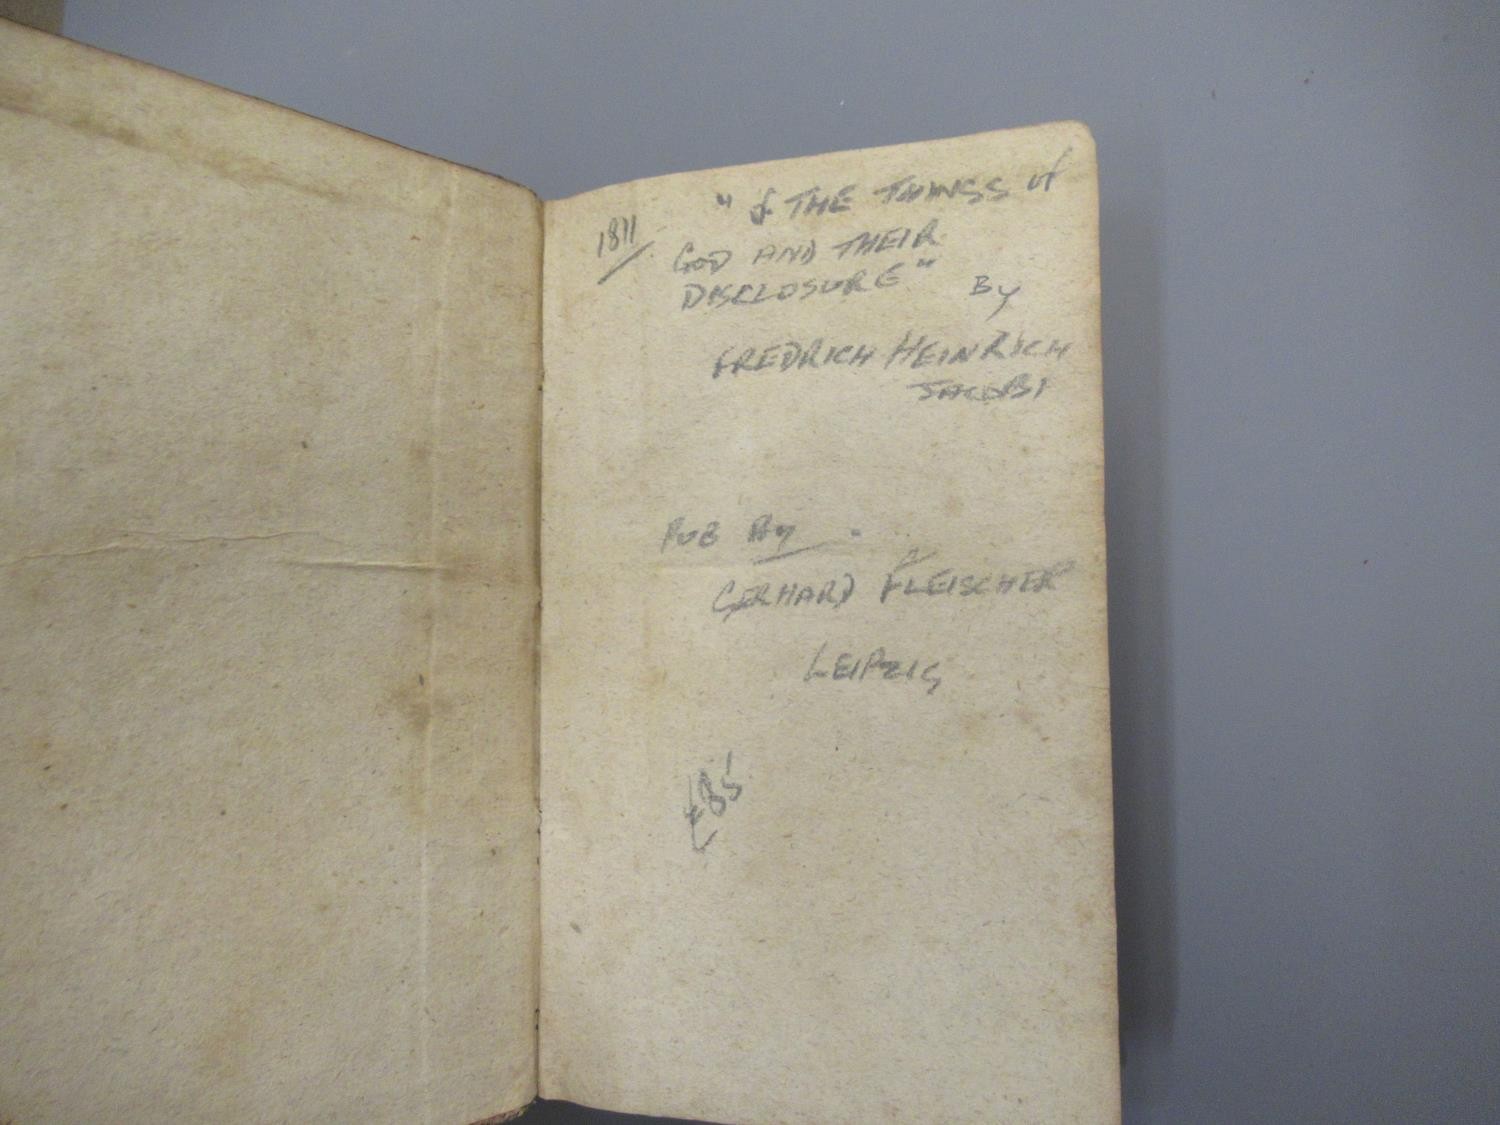 1811
" of THE THINGS of
GOD AND THEIR
DISCLOSURE" By
FREDRICH HEINRICH
JACOBI
PUB By
GERHARD FLEISCHER
LEIPZIG
£85